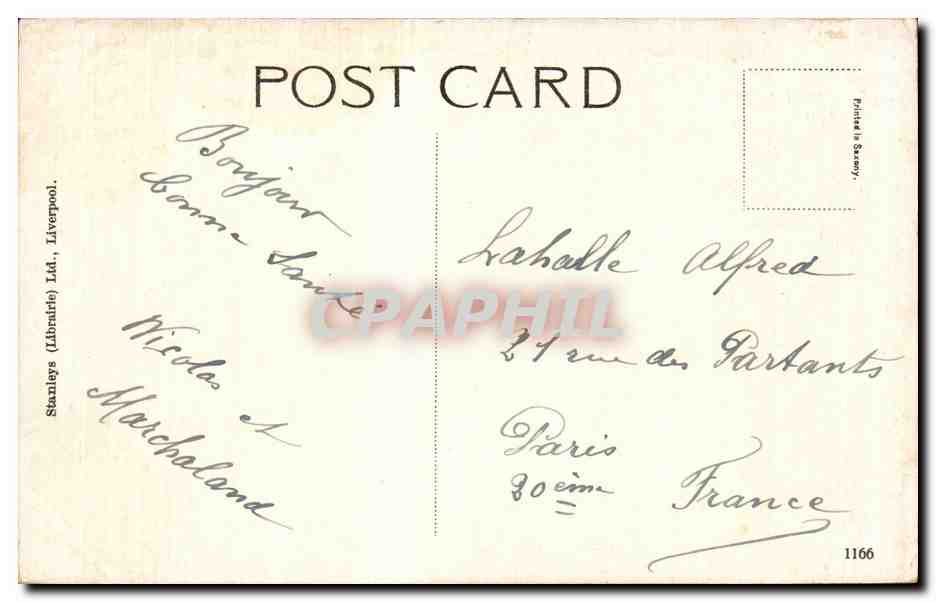 POST CARD
Printed in Saxony.
Stanleys (Librairie) Ltd., Liverpool.
Bonjour
bonne Santé
Nicolas et
Marchaland
Lahalle Alfred
21 rue des Partants
Paris
20ème France
1166
CPAPHIL